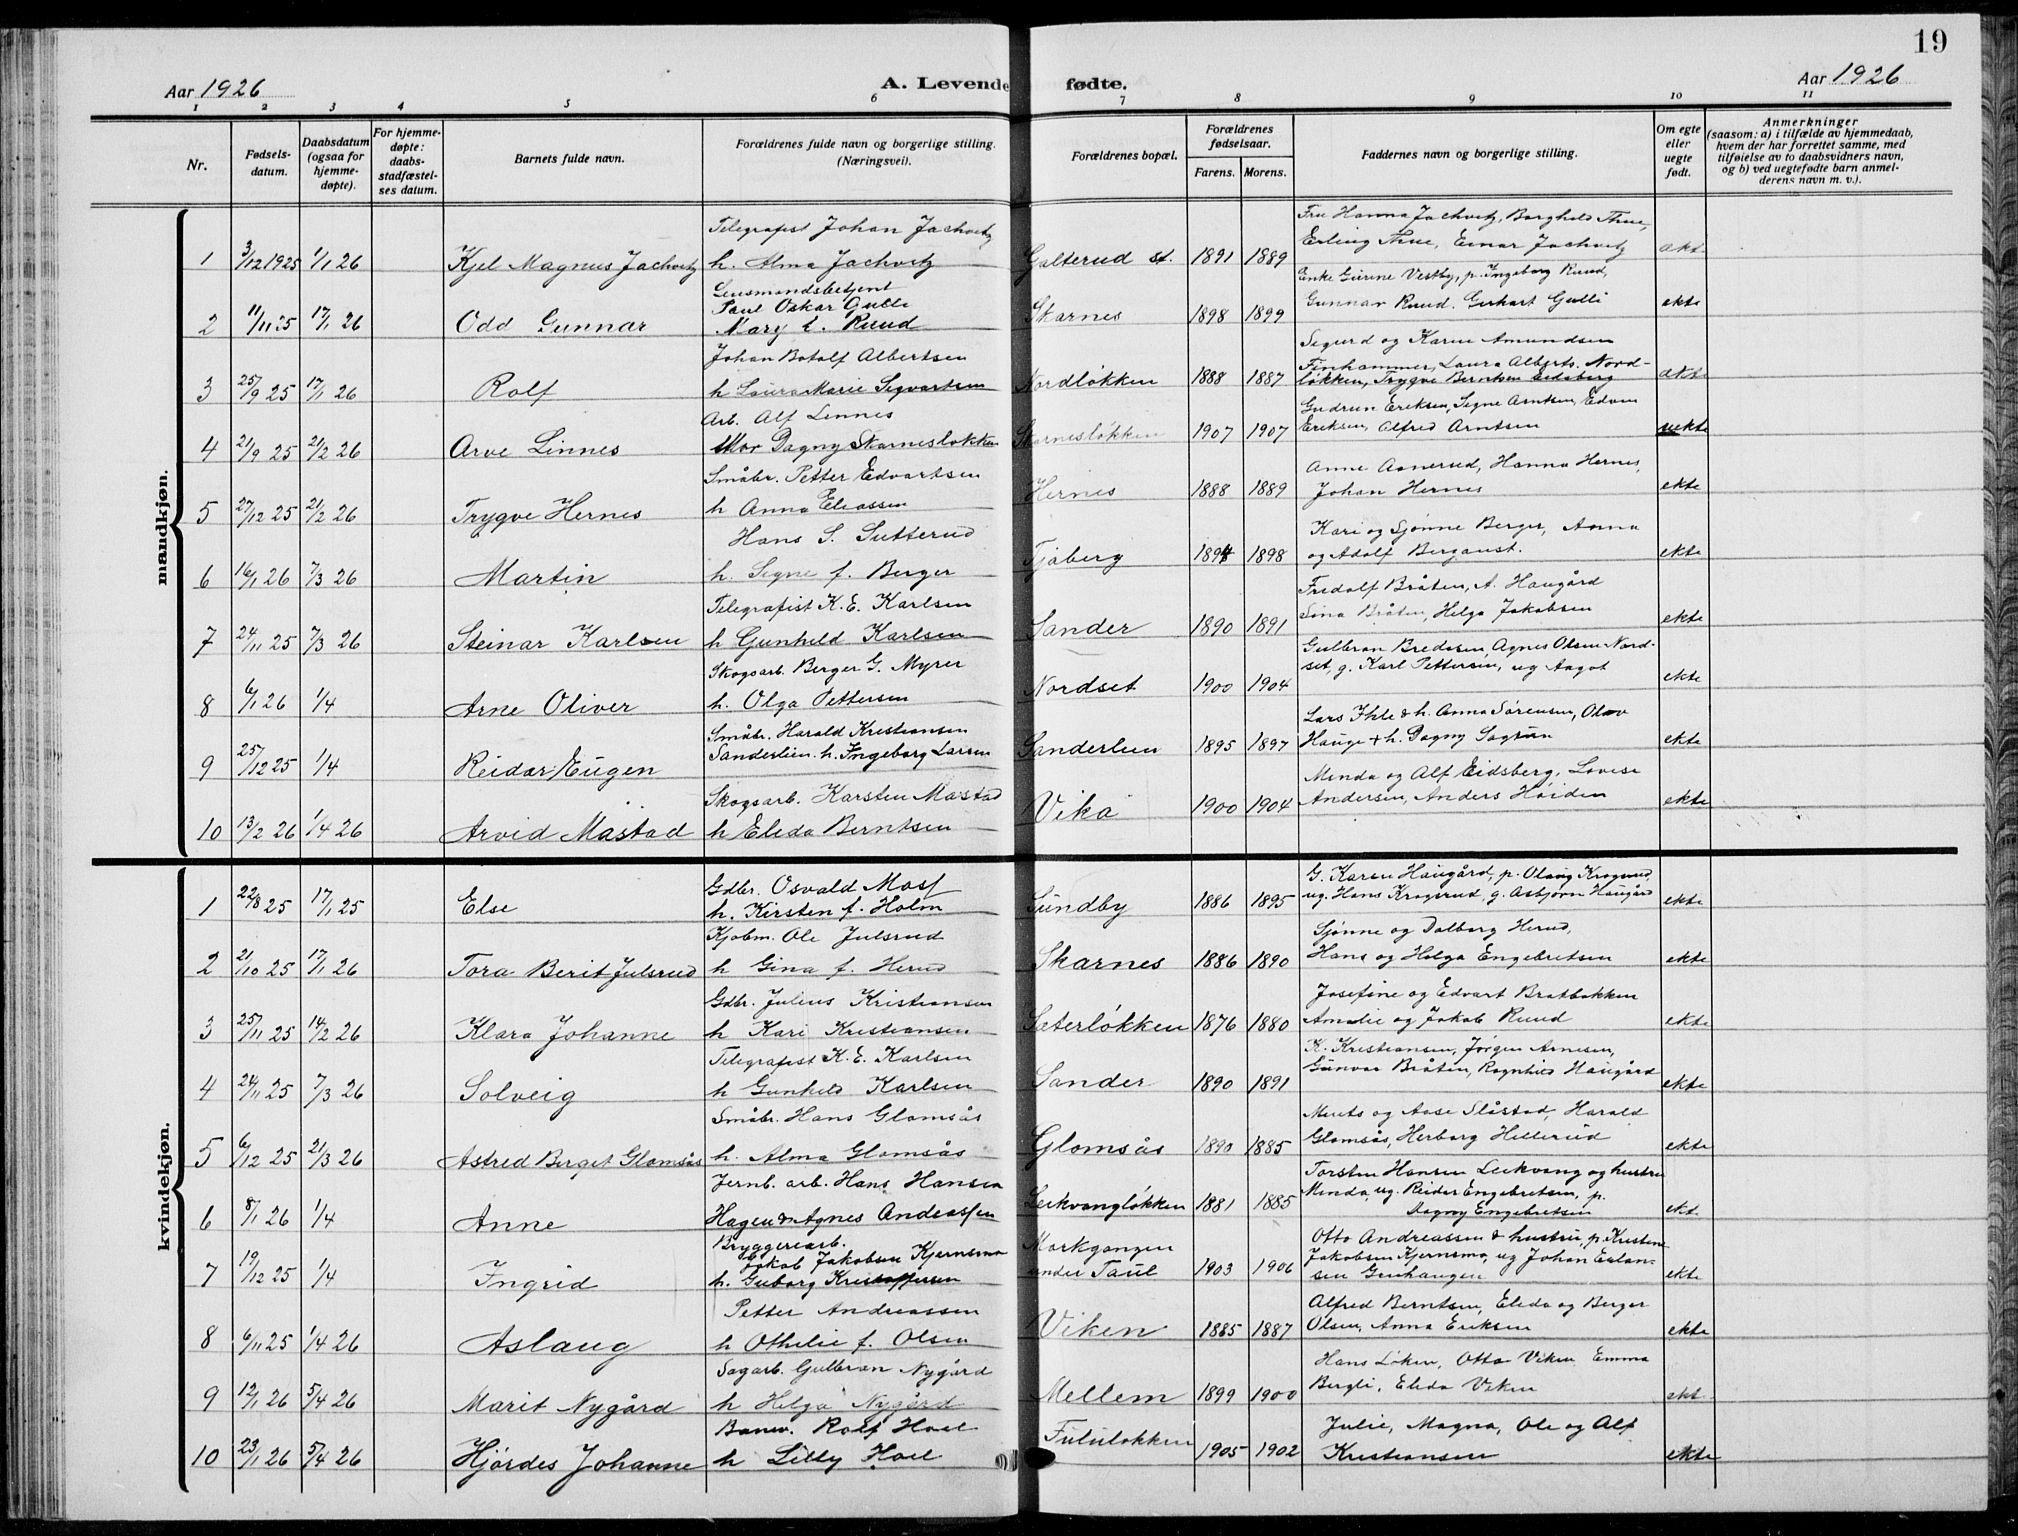 19
Aar 1926
A. Levende fødte.
Aar 1926
1 2 3 4 5 6 7 8 9 10 11
Nr.
Fødsels-
datum.
Daabsdatum
(ogsaa for
hjemme-
døpte).
For hjemme-
døpte:
daabs-
stadfæstel-
ses datum.
Barnets fulde navn.
Forældrenes fulde navn og borgerlige stilling.
(Næringsvei).
Forældrenes bopæl.
Forældrenes
fødselsaar.
Farens. Morens.
Faddernes navn og borgerlige stilling.
Om egte
eller
uegte
født.
Anmerkninger
(saasom: a) i tilfælde av hjemmedaab,
hvem der har forrettet samme, med
tilføielse av to daabsvidners navn,
og b) ved uegtefødte barn anmel-
derens navn m. v.).
mandkjøn.
Telegrafist Johan Jachvitz Fru Hanna Jachvitz, Borghild Thue,
1 3/12 1925 1/1 26 Kjel Magnus Jachvitz h. Alma Jachvitz Galterud st. 1891 1889 Erling Thue, Einar Jachvitz ekte
Lensmandsbetjent Enke Gurine Vestby, p. Ingeborg Ruud,
Paul Oskar Gulli
2 11/11 25 17/1 26 Odd Gunnar Mary L. Ruud Skarnes 1898 1899 Gunnar Ruud. Gerhart Gulli ekte
Johan Botolf Albertsen Sigurd og Karen Amundsen
3 25/9 25 17/1 26 Rolf h Laura Marie Sigvartsen Nordløkken 1888 1887 Finhammer, Laura Alberts. Nord-
løkken, Trygve Berntsen Eidsberg ekte
Arb. Alf Linnes Gudrun Eriksen, Signe Arntsen, Edvin
4 21/9 25 21/2 26 Arve Linnes Mor Dagny Skarnesløkken Skarnesløkken 1907 1907 Eriksen, Alfred Arntsen uekte
Småbr. Petter Edvartsen Anne Aanerud, Hanna Hernes,
5 27/12 25 21/2 26 Trygve Hernes h Anna Eliassen Hernes 1888 1889 Johan Hernes ekte
Hans S. Sutterud Kari og Sjønne Berger, Anna
6 16/1 26 7/3 26 Martin h. Signe f. Berger Tjaberg 1894 1898 og Adolf Bergaust. ekte
Telegrafist K. E. Karlsen Fredolf Bråten, A. Haugård
7 24/11 25 7/3 26 Steinar Karlsen h Gunhild Karlsen Sander 1890 1891 Sina Bråten, Helga Jakobsen ekte
Skogsarb. Berger G. Myrer Gulbran Bredesen, Agnes Olsen Nord-
8 6/1 26 1/4 Arne Oliver h. Olga Pettersen Nordset 1900 1904 set, g. Karl Pettersen, ug Aagot ekte
Småbr. Harald Kristiansen Lars Ihle & h. Anna Sørensen, Olav
9 25/12 25 1/4 Reidar Eugen Sanderlien. h. Ingeborg Larsen Sanderlien 1895 1897 Hauge + h. Dagny Sagrun ekte
Skogsarb. Karsten Mastad Minda og Alf Eidsberg, Lovise
10 13/2 26 1/4 26 Arvid Mastad h Elida Berntsen Vika 1900 1904 Andersen, Anders Høiden ekte
kvindekjøn.
Gdbr. Osvald Mosf G. Karen Haugård, p. Olaug Krogsrud,
1 22/8 25 17/1 25 Else h. Kirsten f. Holm Sundby 1886 1895 ug. Hans Krogsrud, g. Asbjørn Haugård ekte
Kjøbm. Ole Julsrud Sjønne og Dalborg Herud,
2 21/10 25 17/1 26 Tora Berit Julsrud h Gina f. Herud Skarnes 1886 1890 Hans og Helga Engebretsen ekte
Gdbr. Julius Kristiansen Josefine og Edvart Bratbakken
3 25/11 25 14/2 26 Klara Johanne h Kari Kristiansen Sæterløkken 1876 1880 Amalie og Jakob Ruud ekte
Telegrafist K. E. Karlsen K. Kristiansen, Jørgen Arnesen,
4 24/11 25 7/3 26 Solveig h Gunhild Karlsen Sander 1890 1891 Gunvor Bråten, Ragnhild Haugård ekte
Småbr. Hans Glomsås Merets og Aase Slåstad, Harald
5 6/12 25 21/3 26 Astrid Berget Glomsås h. Alma Glomsås Glomsås 1890 1885 Glomsås, Herborg Hillerud ekte
Jernb. arb. Hans Hansen Torsten Hansen Leikvang og hustru
6 8/1 26 1/4 Anne Hagen & Agnes Andreassen Leikvangløkken 1881 1885 Minda, ug. Reidar Engebretsen, p.
Dagny Engebretsen ekt.
Bryggeriarb. Markgangen Otto Andreassen & hustru, p. Kristine
Jakob Jakobsen Kjernsmo
7 19/12 25 1/4 Ingrid h. Guborg Kristoffersen under Taul 1903 1906 Jakobsen Kjernsmo, ug Johan Erlan-
sen Gruhaugen ekte
Petter Andreassen Alfred Berntsen, Elida og Berger
8 6/11 25 1/4 26 Aslaug h Othilie f. Olsen Viken 1885 1887 Olsen, Anna Eriksen ekte
Sagarb. Gulbran Nygård Hans Løken, Otto Viken Emma
9 12/1 26 5/4 26 Marit Nygård h Helga Nygård Mellem 1899 1900 Bergli, Elida Viken ekt
Banev. Rolf Hoel Julie, Magna, Ole og Alf
10 23/1 26 5/4 26 Hjørdes Johanne h Lilly Hoel Fululøkken 1905 1902 Kristiansen ekte